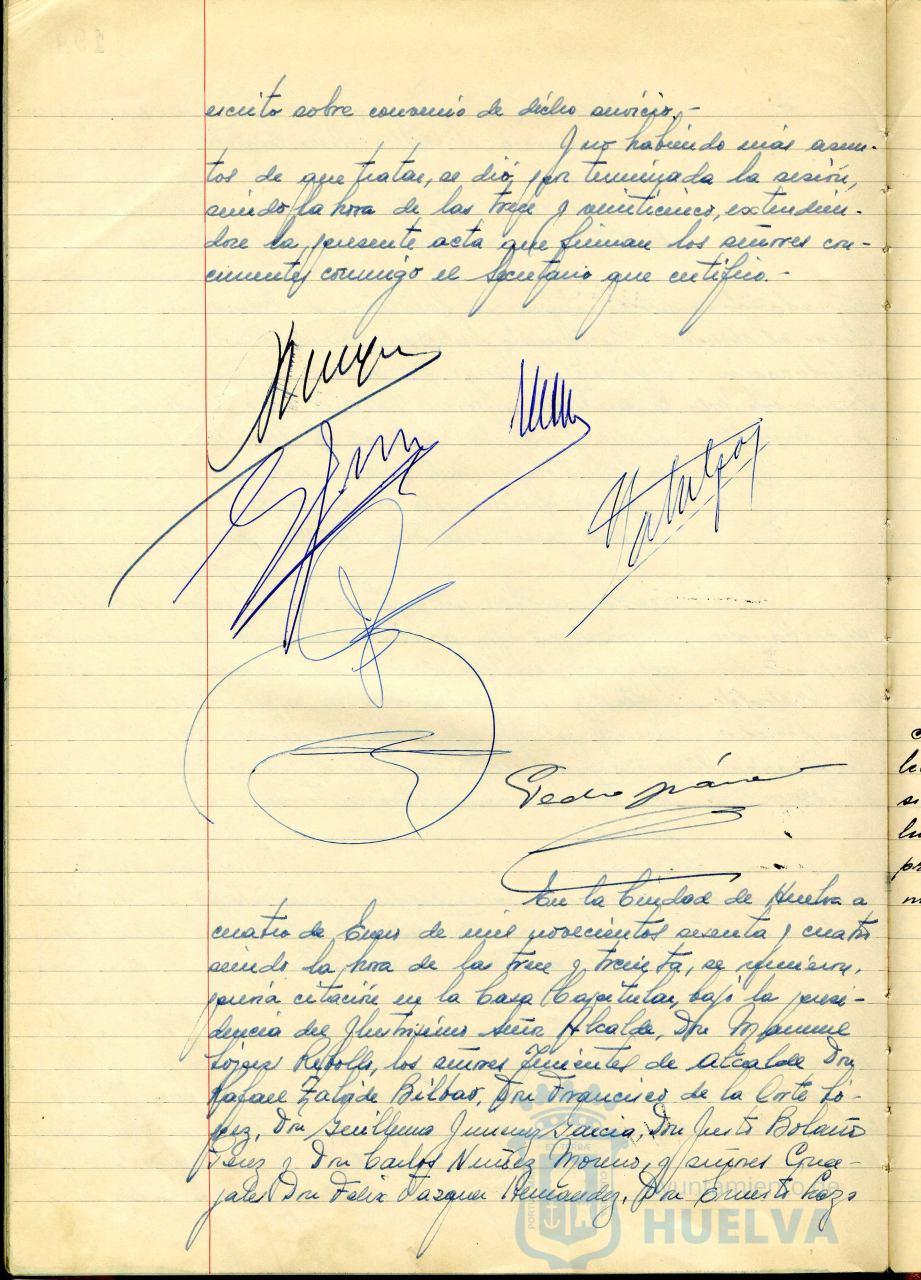 escrito sobre convenio de dicho servicio.-
Y no habiendo más asun-
tos de que tratar, se dió por terminada la sesión,
siendo la hora de las trece y veinticinco, extendien-
dose la presente acta que firman los señores con-
currentes conmigo el Secretario que certifico.-
Pedro
En la Ciudad de Huelva a
cuatro de Enero de mil novecientos sesenta y cuatro
siendo la hora de las trece y treinta, se reunieron,
previa citación en la Casa Capitular, bajo la presi-
dencia del Ilustrísimo Señor Alcalde, Don Manuel
López Rebollo, los señores Tenientes de Alcalde Don
Rafael Zalvide Bilbao, Don Francisco de la Corte Ló-
pez, Don Guillermo Jimenez Garcia, Don Justo Bolaño
Perez y Don Carlos Nuñez Moreno, y señores Conce-
jales Don Felix Vazquez Hernández, Don Ernesto
Ayuntamiento de
HUELVA